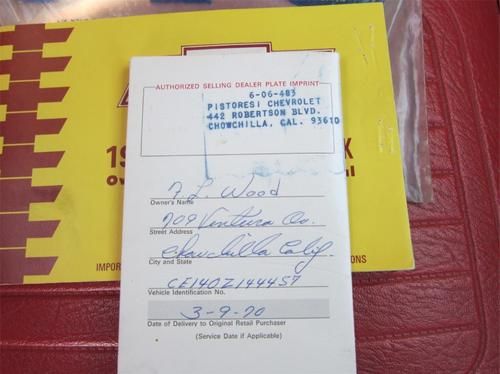 AUTHORIZED SELLING DEALER PLATE IMPRINT
6-06-483
PISTORESI CHEVROLET
442 ROBERTSON BLVD.
CHOWCHILLA, CAL. 93610
19
X
F. L. Wood
Owner's Name
709 Ventura Av.
Street Address
Chowchilla Calif.
City and State
CE140Z144457
Vehicle Identification No.
3-9-70
Date of Delivery to Original Retail Purchaser
(Service Date if Applicable)
IMPOR